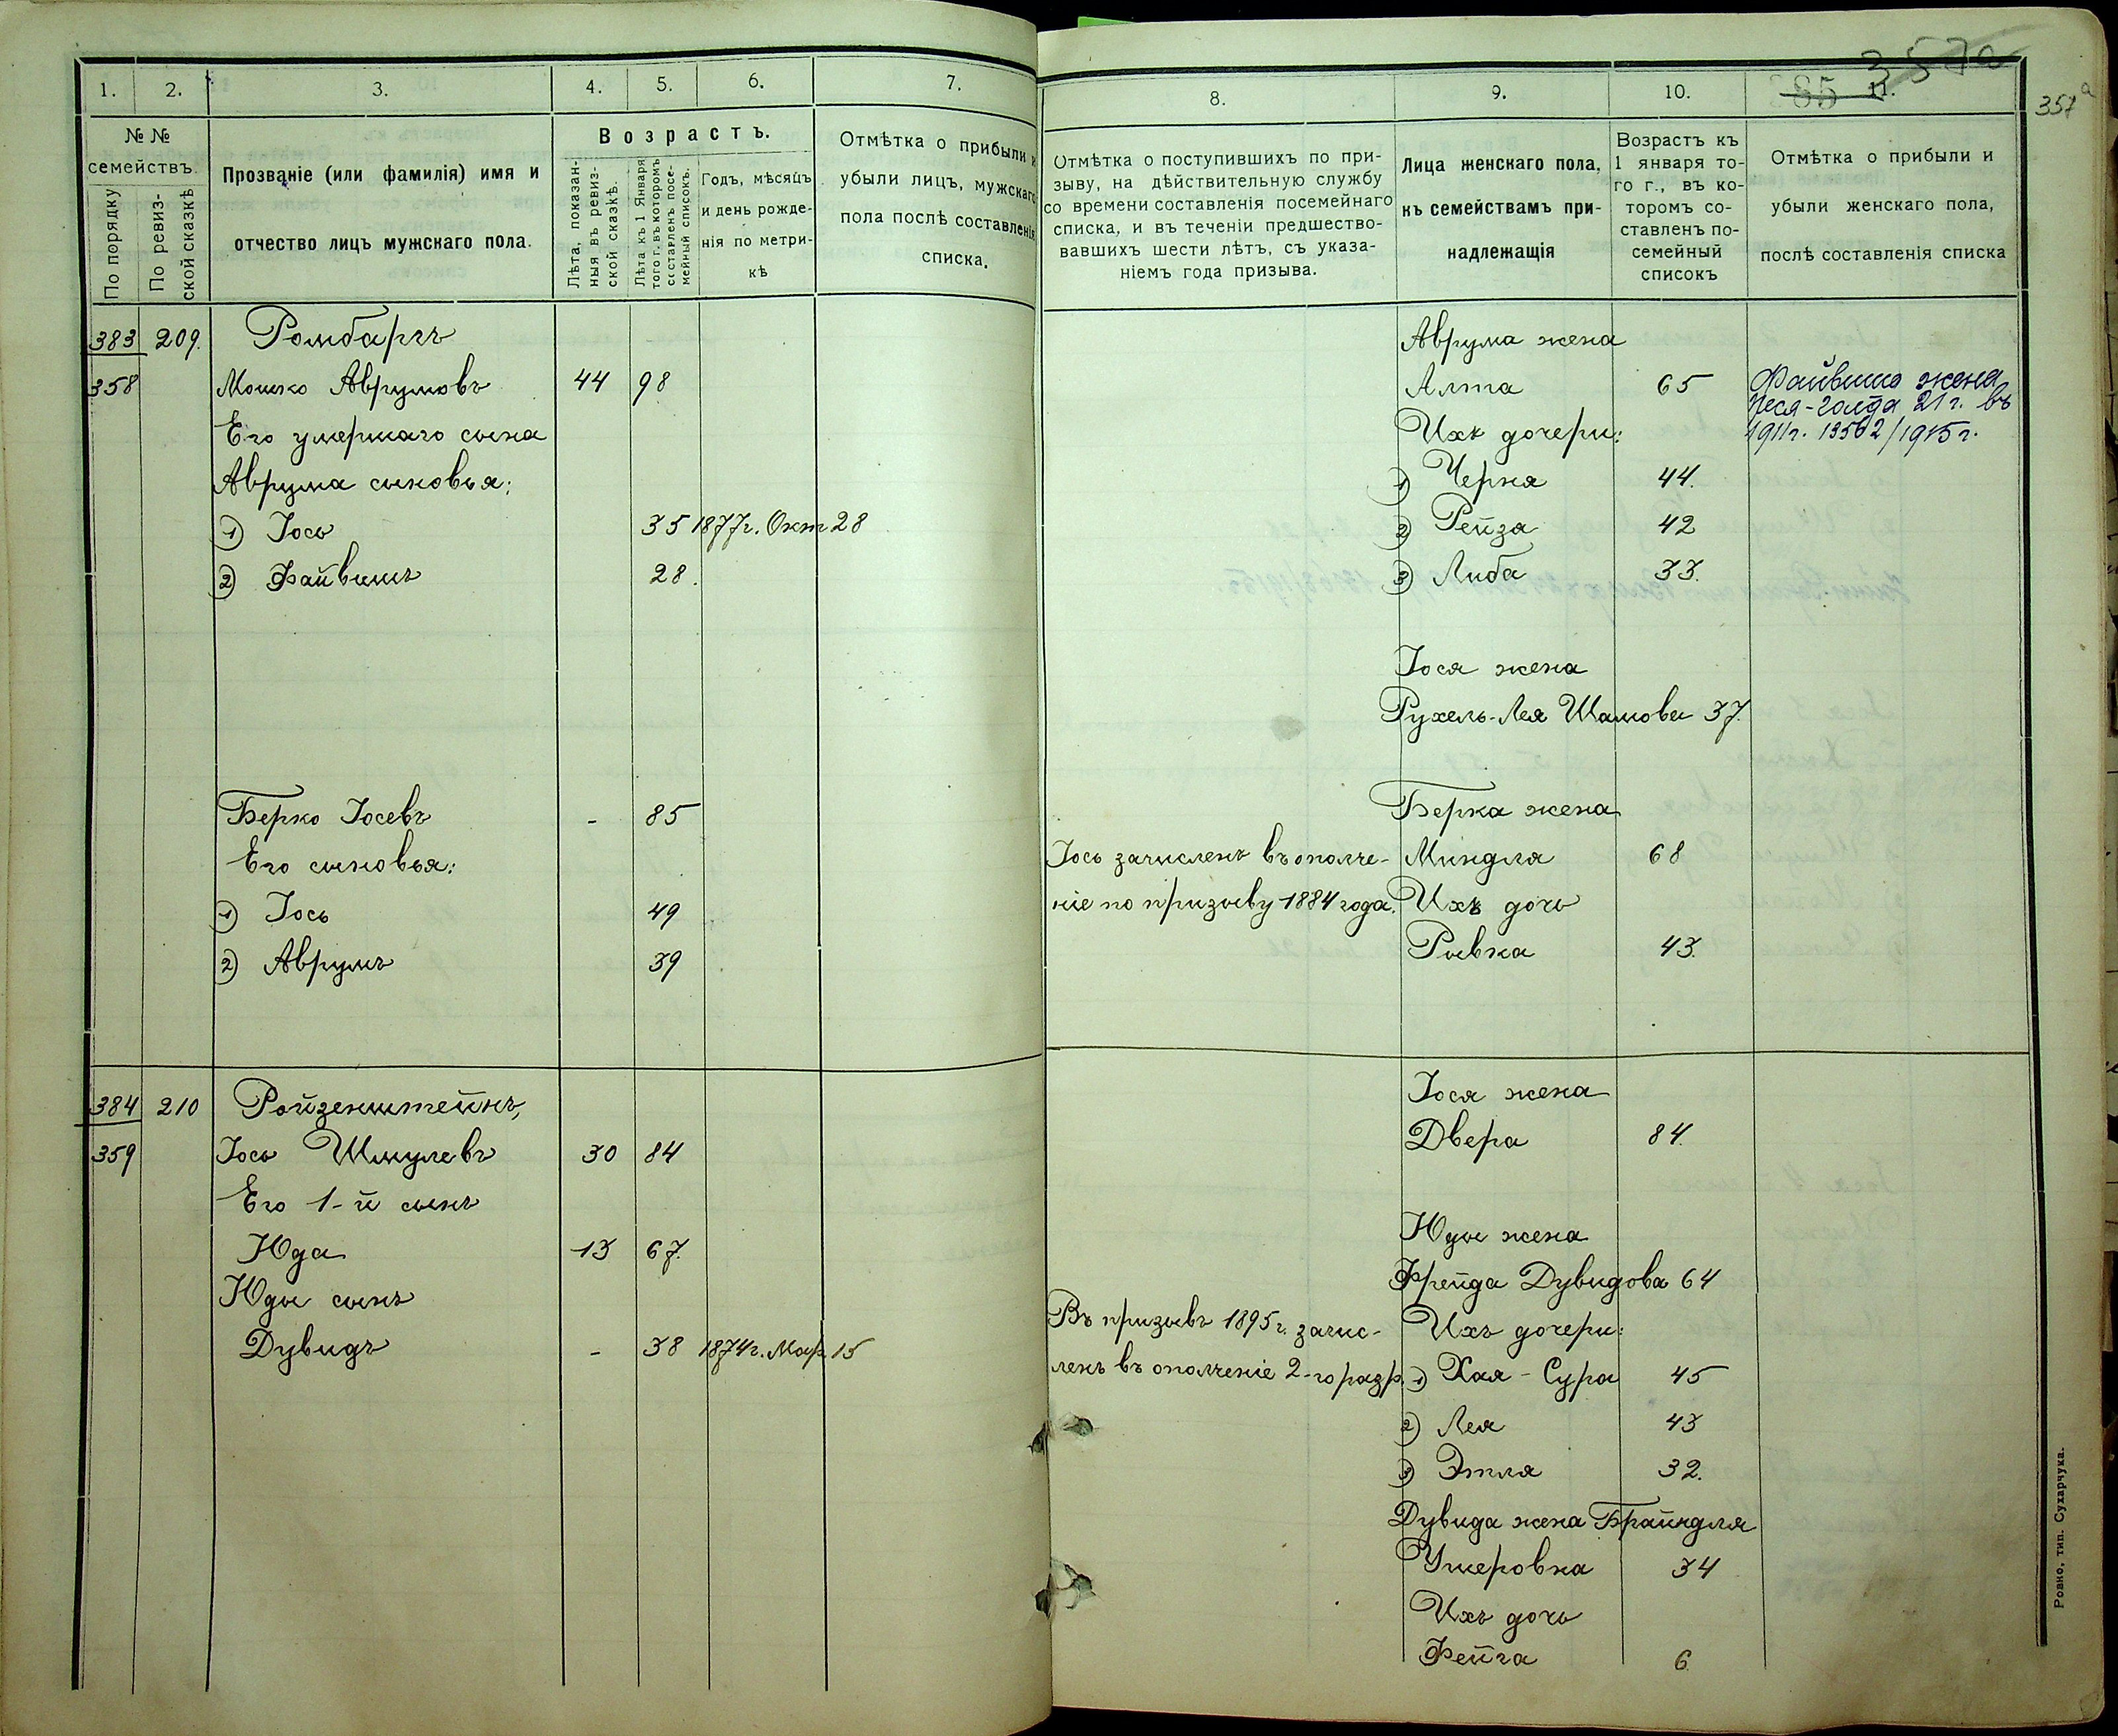 1. 2. 3. 4. 5. 6. 7.
№ №
семействъ.
По порядку
По ревиз-
ской сказкѣ
Прозваніе (или фамилія) имя и
отчество лицъ мужскаго пола.
Возрастъ.
Лѣта, показан-
ныя въ ревиз-
ской сказкѣ.
Лѣта къ 1 Января
того г. въ которомъ
составленъ посе-
мейный списокъ.
Годъ, мѣсяцъ
и день рожде-
нія по метри-
кѣ
Отмѣтка о прибыли и
убыли лицъ, мужскаго
пола послѣ составленія
списка.
383 209. Ромбаргъ
358 Мошко Аврумовъ 44 98
Его умершаго сына
Аврума сыновья:
1) Іось 35 1877г. Окт 28
2) Файвишъ 28.
Берко Іосевъ - 85
Его сыновья:
1) Іось 49
2) Аврумъ 39
384 210 Ройзенштейнъ,
359 Іось Шмулевъ 30 84
Его 1-й сынъ
Юда 13 67.
Юды сынъ
Дувидъ - 38 1874г. Мар. 15
357а
385
357а
8. 9. 10. 11.
Отмѣтка о поступившихъ по при-
зыву, на дѣйствительную службу
со времени составленія посемейнаго
списка, и въ теченіи предшество-
вавшихъ шести лѣтъ, съ указа-
ніемъ года призыва.
Лица женскаго пола,
къ семействамъ при-
надлежащія
Возрастъ къ
1 января то-
го г., въ ко-
торомъ со-
ставленъ по-
семейный
списокъ
Отмѣтка о прибыли и
убыли женскаго пола,
послѣ составленія списка
Аврума жена
Алта 65
Файвиша жена
Песя-Голда 21 г. въ
1911г. 13562/1915 г.
Ихъ дочери:
1) Черня 44.
2) Рейза 42
3) Либа 33.
Іося жена
Рухель-Лея Шамова 37.
Берка жена
Іось зачисленъ въ ополче- Миндля 68
ніе по призыву 1884 года. Ихъ дочь
Ривка 43.
Іося жена
Двера 84.
Юды жена
Фрейда Дувидова 64
Въ призывъ 1895 г. зачис- Ихъ дочери:
ленъ въ ополченіе 2-го разр. 1) Хая-Сура 45
2) Лея 43
3) Этля 32.
Дувида жена Брайндля
Ушеровна 34
Ихъ дочь
Фейга 6
Ровно, тип. Сухарчука.